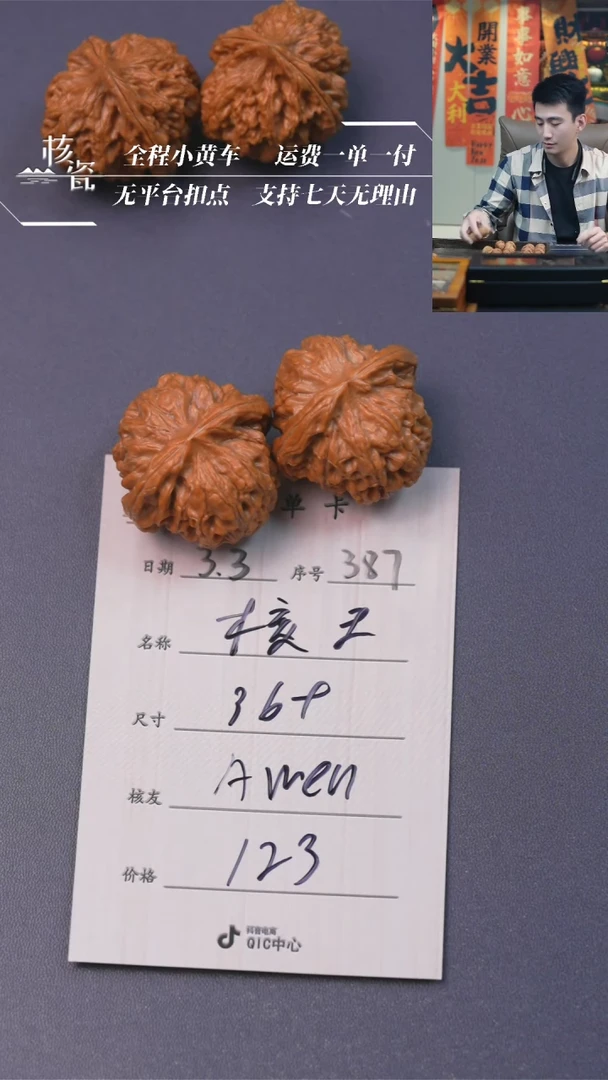 核瓷
全程小黄车 运费一单一付
无平台扣点 支持七天无理由
開業大吉
大利
事事如意
心
财
单卡
日期 3.3 序号 387
名称 核王
尺寸 36+
核友 Amen
价格 123
抖音电商
QIC中心